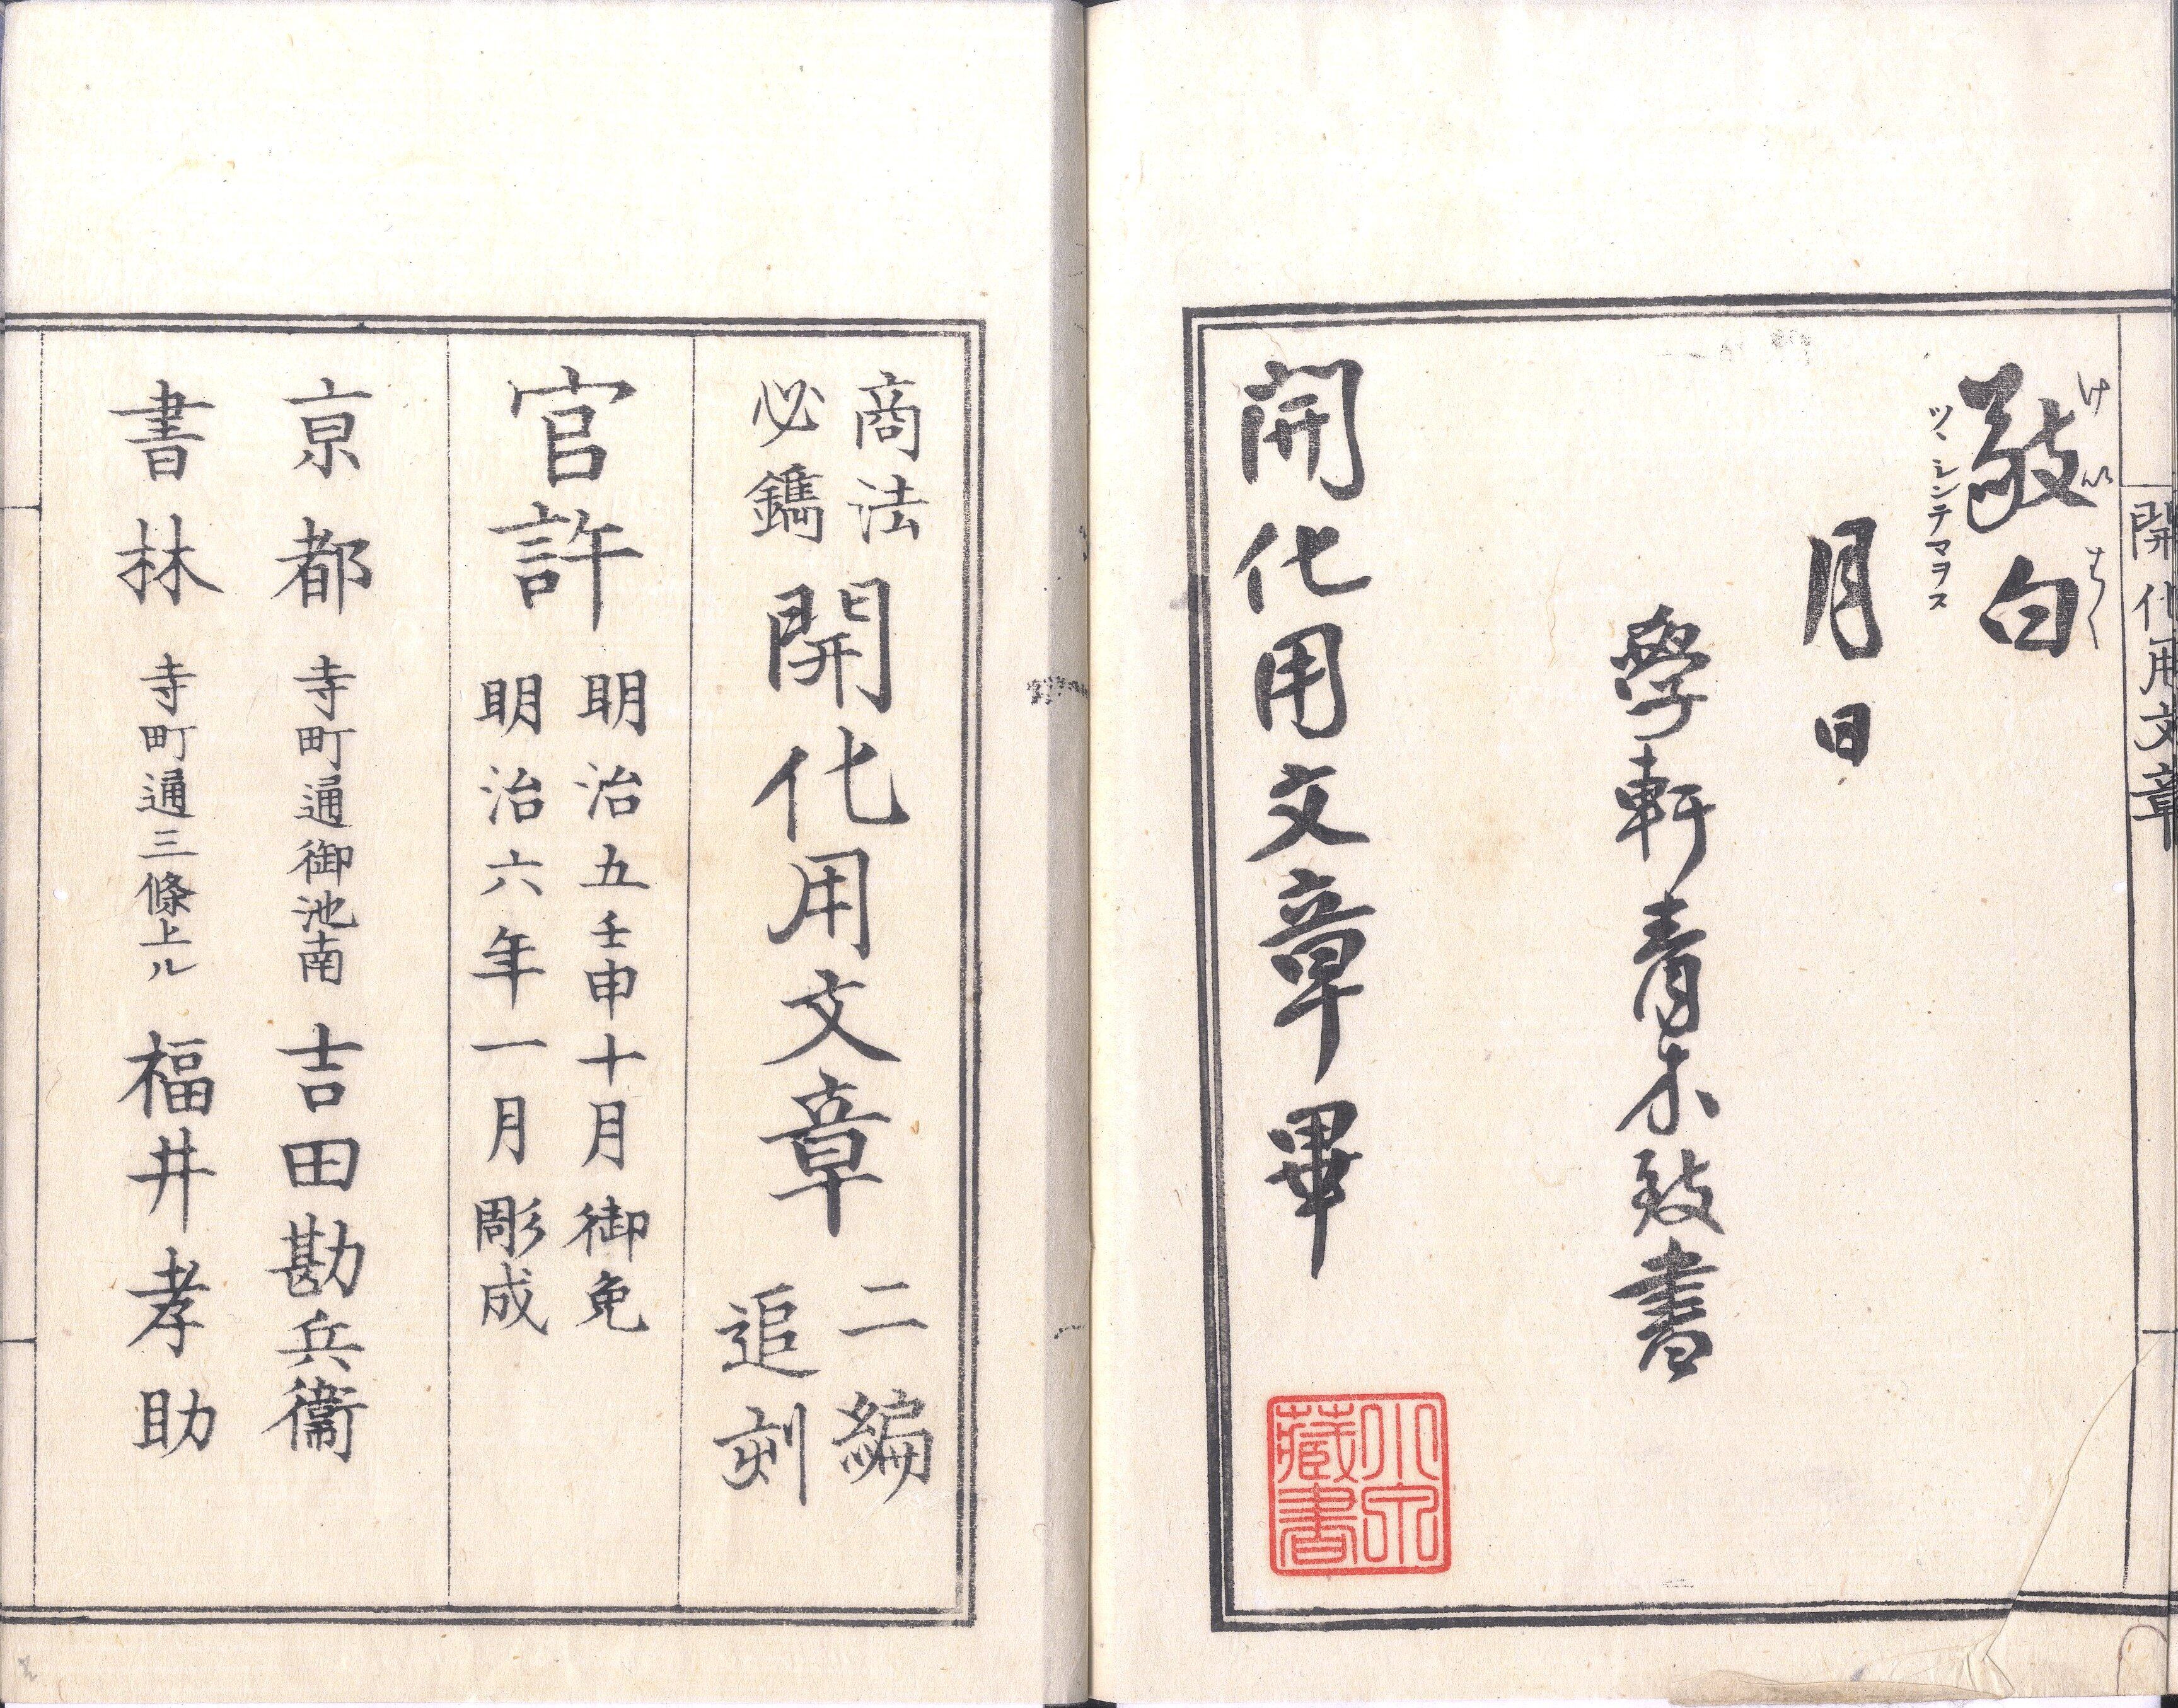 開化用文章
敬白
けいはく
ツヽシンテマヲス
月日
學軒青木致書
開化用文章畢
小泉藏書
商法
必鐫
開化用文章
二編
追刻
官許
明治五壬申十月御免
明治六年一月彫成
亰都 寺町通御池南 吉田勘兵衞
書林 寺町通三條上ル 福井孝助